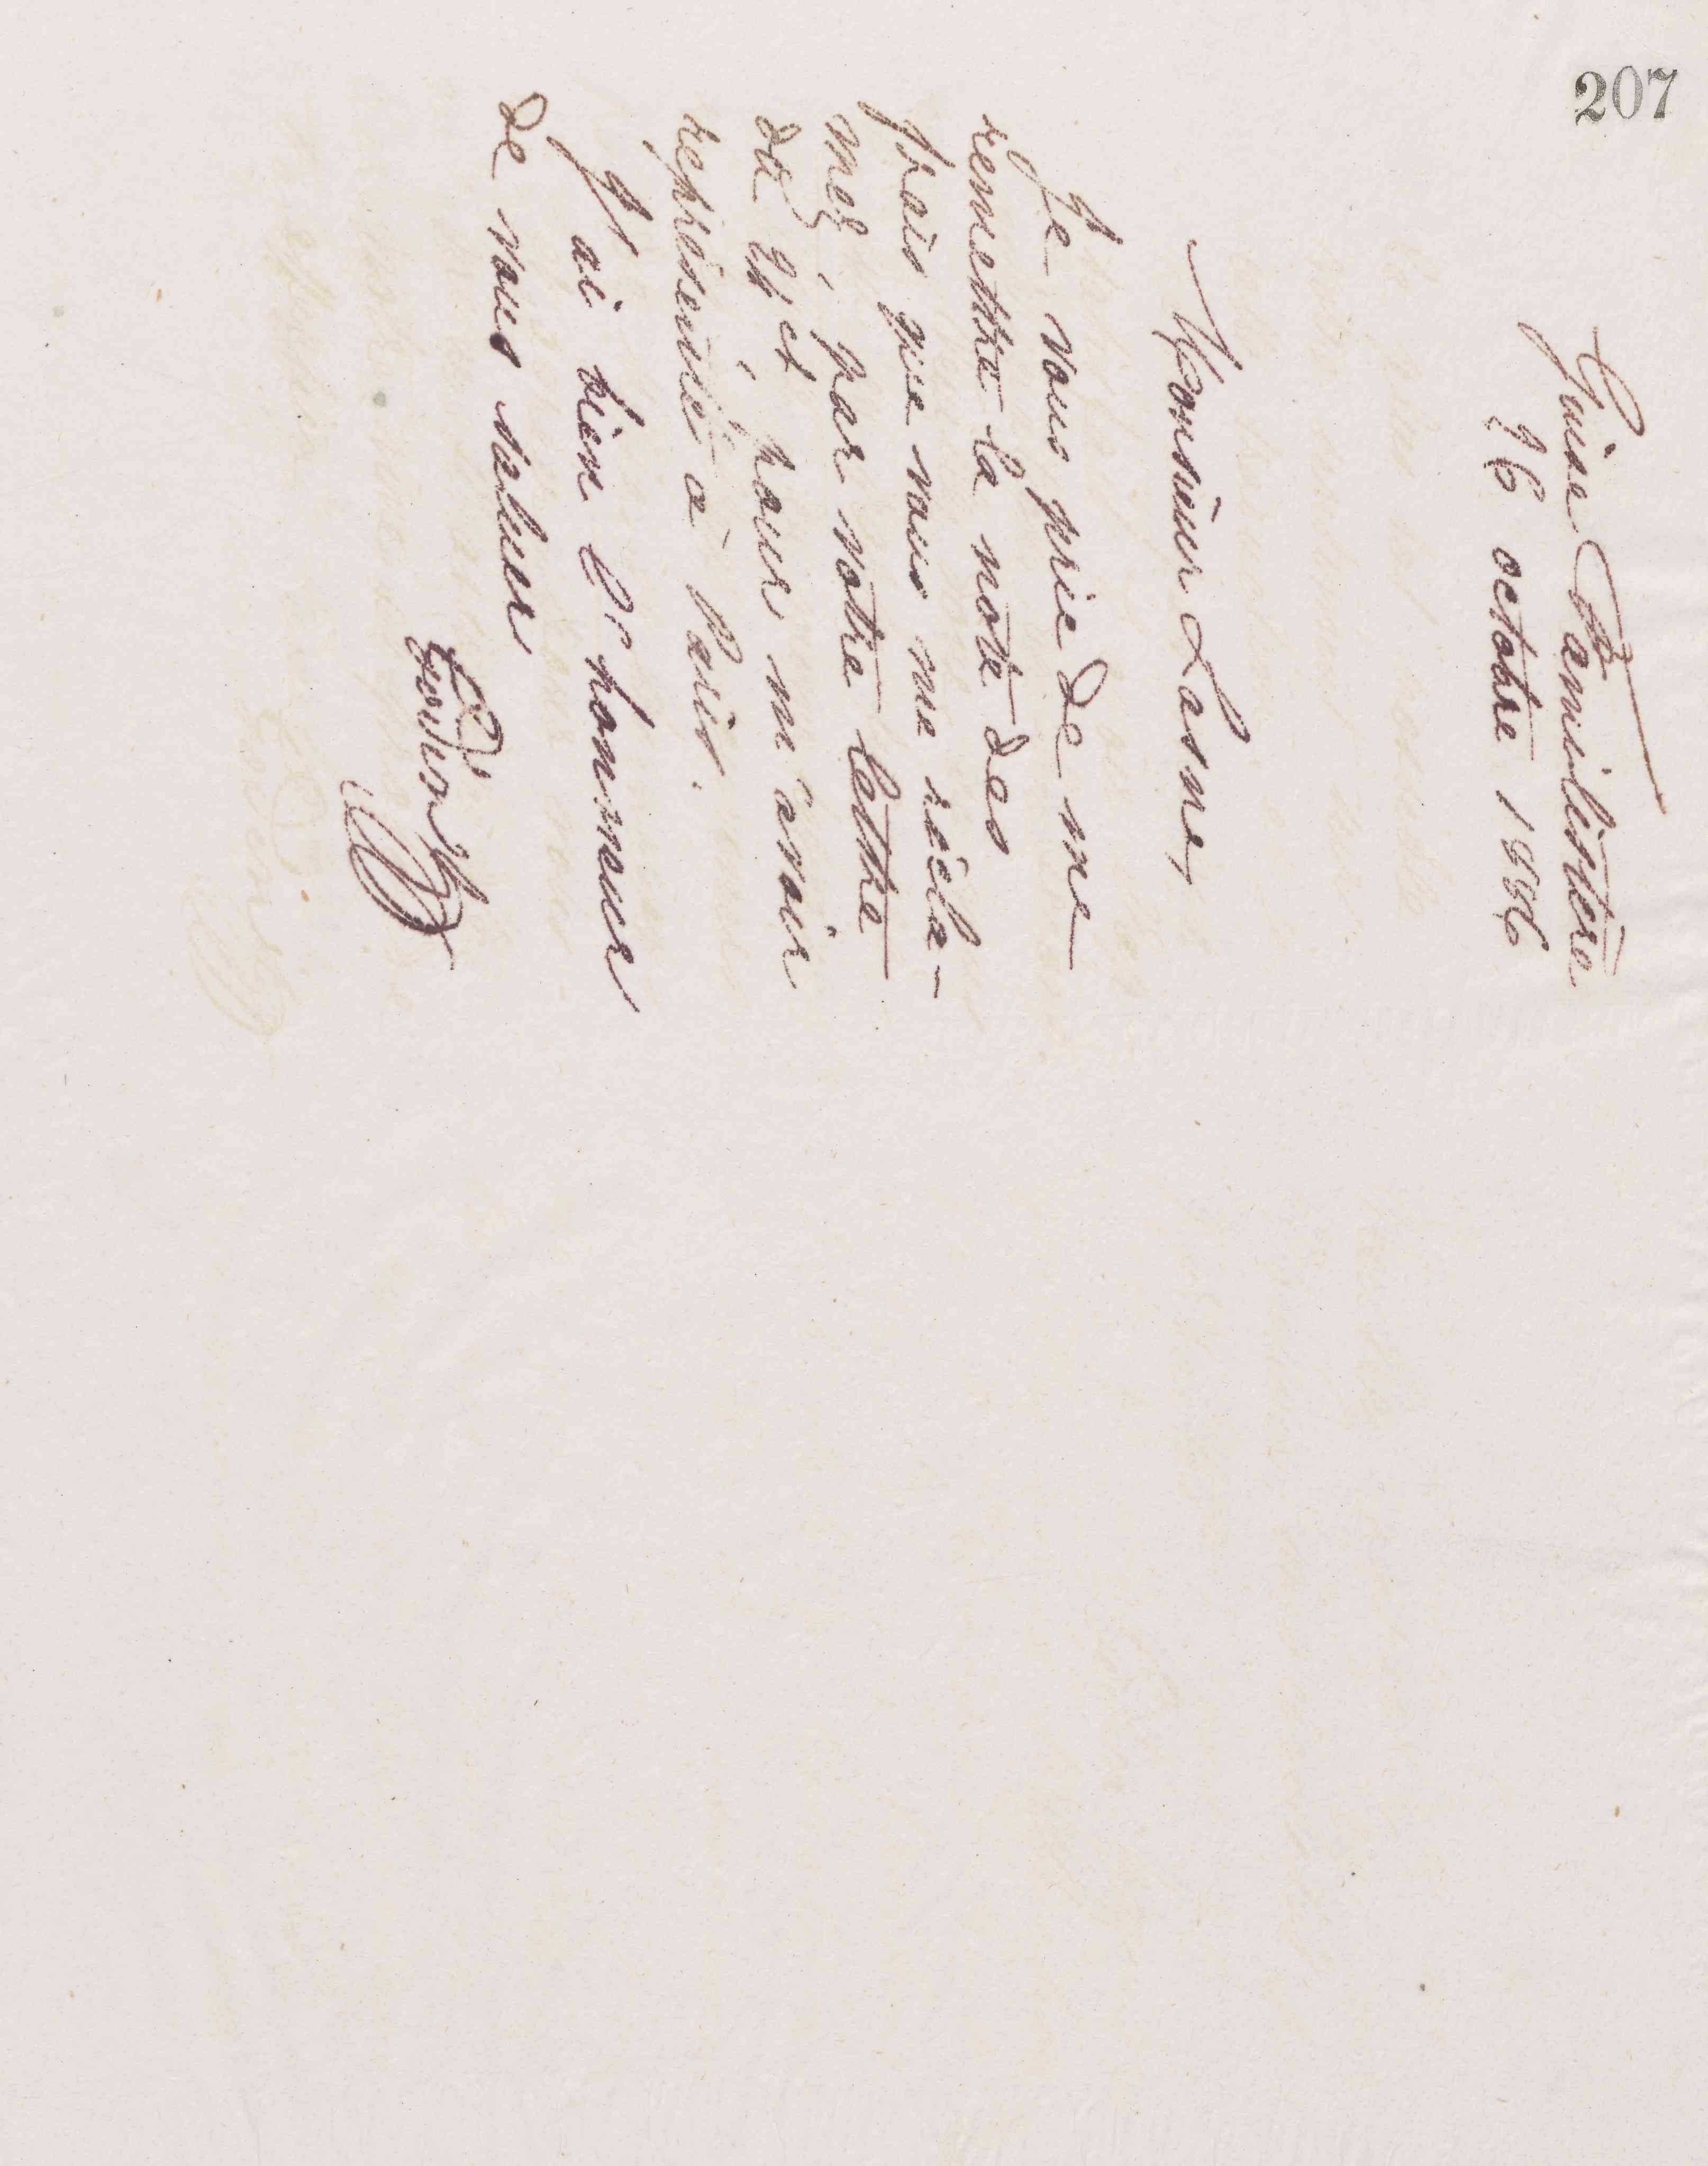 207
Guise Familistère
26 octobre 1886
Monsieur Lasne,
Je vous prie de me
remettre la note des
frais que vous me récla-
mez, par votre lettre
du 21 ct, pour m'avoir
représenté à Paris.
J'ai bien l'honneur
de vous saluer
Godin